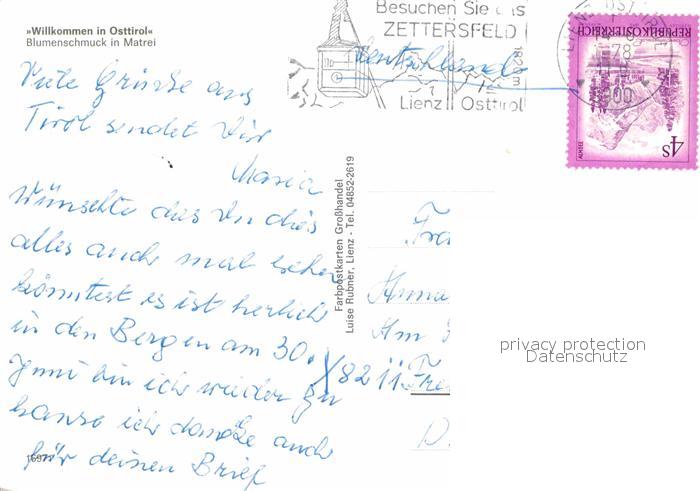 »Willkommen in Osttirol«
Blumenschmuck in Matrei
Viele Grüße aus
Tirol sendet Dir
Maria
Wünschte das du dies
alles auch mal sehen
könntest es ist herlich
in den Bergen am 30.
Juni bin ich wieder zu
hause ich danke auch
für deinen Brief
16977
Farbpostkarten Großhandel
Luise Rubner, Lienz - Tel. 04852-2619
Besuchen Sie das
ZETTERSFELD
1820 m
Lienz Osttirol
Deutschland
REPUBLIK ÖSTERREICH
4S
ALMSEE
78
Anna
Am
8211
D.
privacy protection
Datenschutz